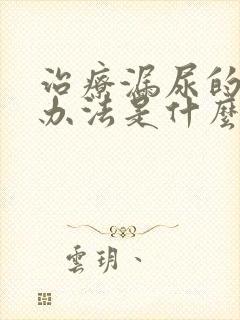 治療漏尿的
办法是什麼
雲玥、